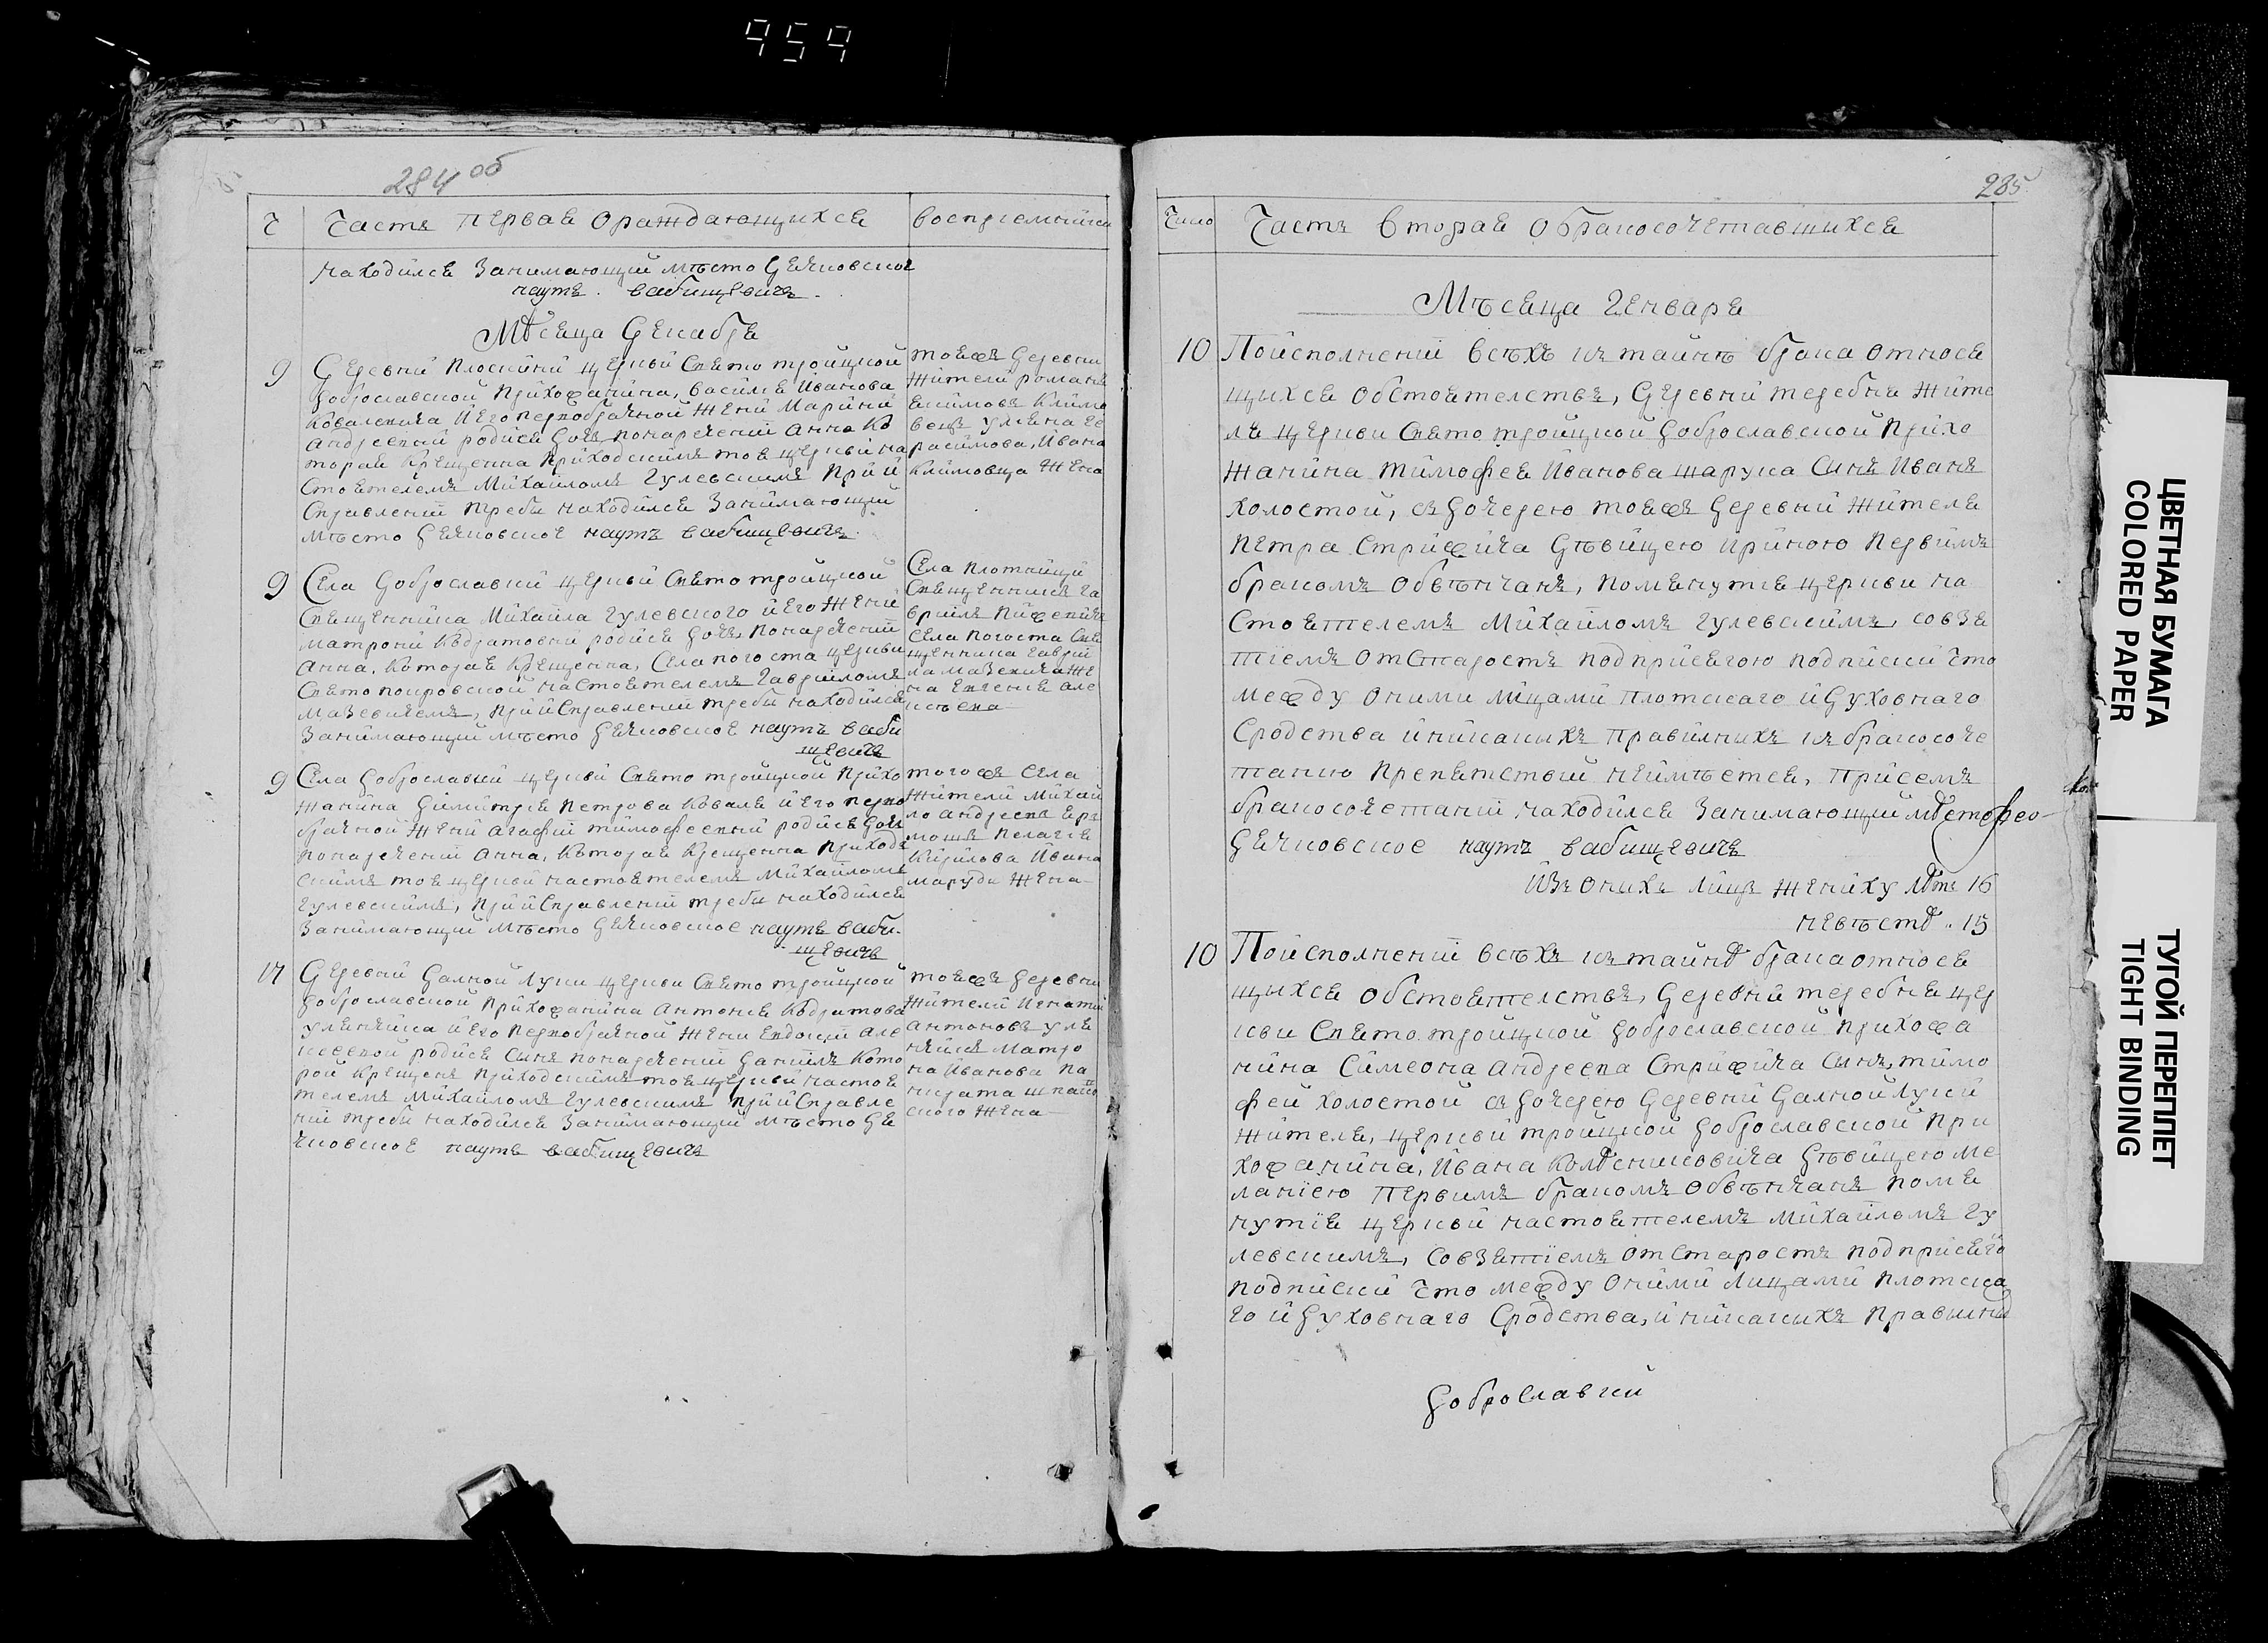 959
284 об
Ч Часть Первая ораждающихся воспрiемнийки
находился Занимающий мѣсто Дячковское
наутъ. вабищевичъ.
Мѣсяца Декабря
9 Деревнй Плоскинй церквй Свято тройцкой
доброславской Прйхожанйна, василя Иванова
Ковалевича й его первобрачной Женй Маринй
Андреевнй родися дочь понареченiй Анна Ко
торая Крещенна Прйходскимъ тоя церквй на
стоятелемъ Мйхаиломъ Гулевскимъ Прй й
справленiй требы находился Занймающий
мѣсто Дячковское наутъ вабищевичъ.
тояжъ Деревни
Жйтелй романъ
Климо
вецъ Ульяна Ге
расимова, Ивана
Климовца Жена
9 Села Доброславкй церквй Свято тройцкой
Священнйка Мйхаила Гулевского й его Женй
Матронй Кодратовнй родися дочь понареченiй
Анна, Которая Крещенна, Села погоста церкви
Свято покровской настоятелемъ Гаврйломъ
Мазевичемъ, прй йсправленiй требы находился
Занймающий мѣсто Дячковское наутъ ваби
щевичъ
Села Плотнйцй
Священникъ Га
врйлъ
Села Погоста Свя
щенника Гаврйй
ла Мазевича Же
на Евгения Але
9 Села Доброславкй церквй Свято тройцкой Прйхо
жанйна Димитрiя Петрова Коваля й его перво
брачной Женй Агафiй тймофеевнй родися дочь
понареченiй Анна, Которая Крещенна Прйход
скимъ тоя церквй настоятелемъ Мйхаиломъ
Гулевскимъ, прй йсправленiй требы находился
Занймающий мѣсто Дячковское наутъ ваби-
щевичъ
тогожъ Села
Жйтелй Мйхай
ло Андреевъ Ер
мошъ Пелагiя
Кйрйлова Йвана
Маруды Жена
17 Деревнй Далной Луки церкви Свято тройцкой
доброславской Прйхожанйна Антония Кодратова
уляейка й его Первобрачной Жены Евдокiй Але
родися Сынъ понареченiй Данйилъ Кото
рой Крещенъ Прйходскимъ тоя церквй настоя
телемъ Мйхаиломъ Гулевскимъ Прй йсправле
нiй требы находился Занймающий мѣсто Дя
чковское наутъ вабищевичъ
тояжъ Деревни
Жйтелй Игнатiй
Антоновъ уля
нейкъ Матро
на Иванова Па
ского Жена
285
Число Часть вторая о бракосочетавшихся
Мѣсяца Генваря
10 Пойсполненiй всѣхъ къ тайнѣ брака относя
щыхся обстоятелствъ, Деревнй теребня Жите
ль церкви Свято тройцкой доброславской Прйхо
жанйна Тимофея Иванова шарука Синъ Иванъ
холостой, съ дочерею тояжъ Деревнй Жйтеля
Петра Стрйжйча Дѣвйцею Ирйною Первймъ
бракомъ обвѣнчанъ, помянутiя церкви на
стоятелемъ Мйхайломъ Гулевскймъ, совзя
тiемъ отстаростъ подприсягою подпйскй что
между оними лйцами плотскаго й Духовнаго
Сродства йнйканыхъ Правйлныхъ къ бракосоче
танию Препятствiй нейметься, прйсемъ
бракосочетанiй находился Занимающий мѣсто
Дячковское наутъ вабищевичъ
Йзъ онихъ лйцъ Женйху лѣтъ 16
невѣстѣ .. 15
10 Пойсполненiй всѣхъ къ тайнѣ брака относя
щыхся обстоятелствъ, Деревнй теребня цер
кви Свято тройцкой доброславской Прихожа
нйна Сймеона Андреева Стрйжйча Сынъ, тймо
фей холостой съ дочерею Деревнй Далной Лукй
Жйтеля, церквй тройцкой доброславской При
хожанйна, Ивана Колѣснйковйча Дѣвйцею Ме
ланiею Первимъ бракомъ обвѣнчанъ помя
нутiя церквй настоятелемъ Мйхайломъ Гу
левскимъ, совзятiемъ отстаростъ подприсяго
подпйскй что между онймй лицамй плотска
го й Духовнаго Сродства, й нйканыхъ Правилны
Доброславкй
ЦВЕТНАЯ БУМАГА
COLORED PAPER
ТУГОЙ ПЕРЕПЛЕТ
TIGHT BINDING